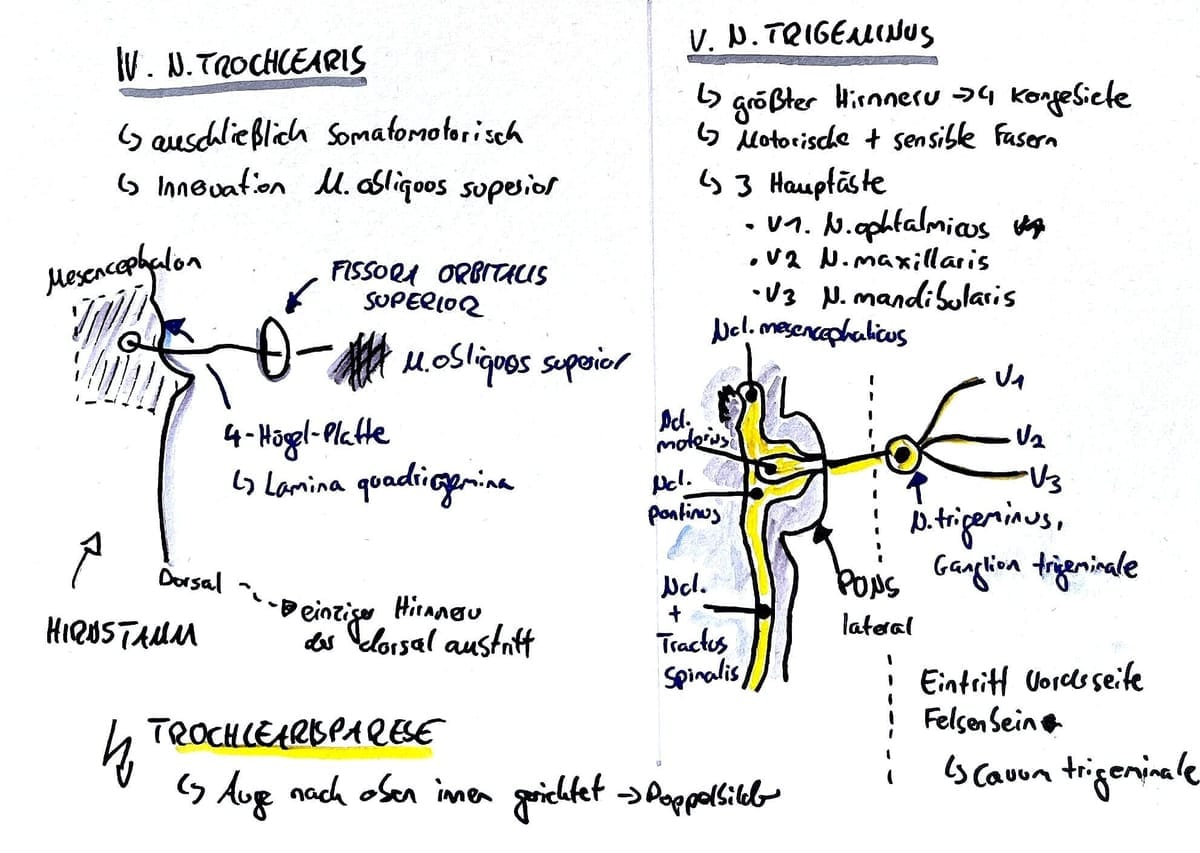 IV. N. TROCHLEARIS
↳ auschließlich Somatomotorisch
↳ Innevation M. obliquus superior
Mesencephalon
FISSURA ORBITALIS
SUPERIOR
M. obliquus superior
4-Hügel-Platte
↳ Lamina quadrigemina
Dorsal
einziger Hirnnerv
der dorsal austritt
HIRNSTAMM
TROCHLEARISPARESE
↳ Auge nach oben innen gerichtet → Doppelbilder
V. N. TRIGEMINUS
↳ größter Hirnnerv → 4 Kerngebiete
↳ Motorische + sensible Fasern
↳ 3 Hauptäste
• V1. N. ophtalmicus
• V2 N. maxillaris
• V3 N. mandibularis
Ncl. mesencephalicus
Ncl.
motorius
Ncl.
pontinus
Ncl.
+
Tractus
Spinalis
V1
V2
V3
N. trigeminus,
Ganglion trigeminale
PONS
lateral
Eintritt Vorderseite
Felsenbein
↳ Cavum trigeminale